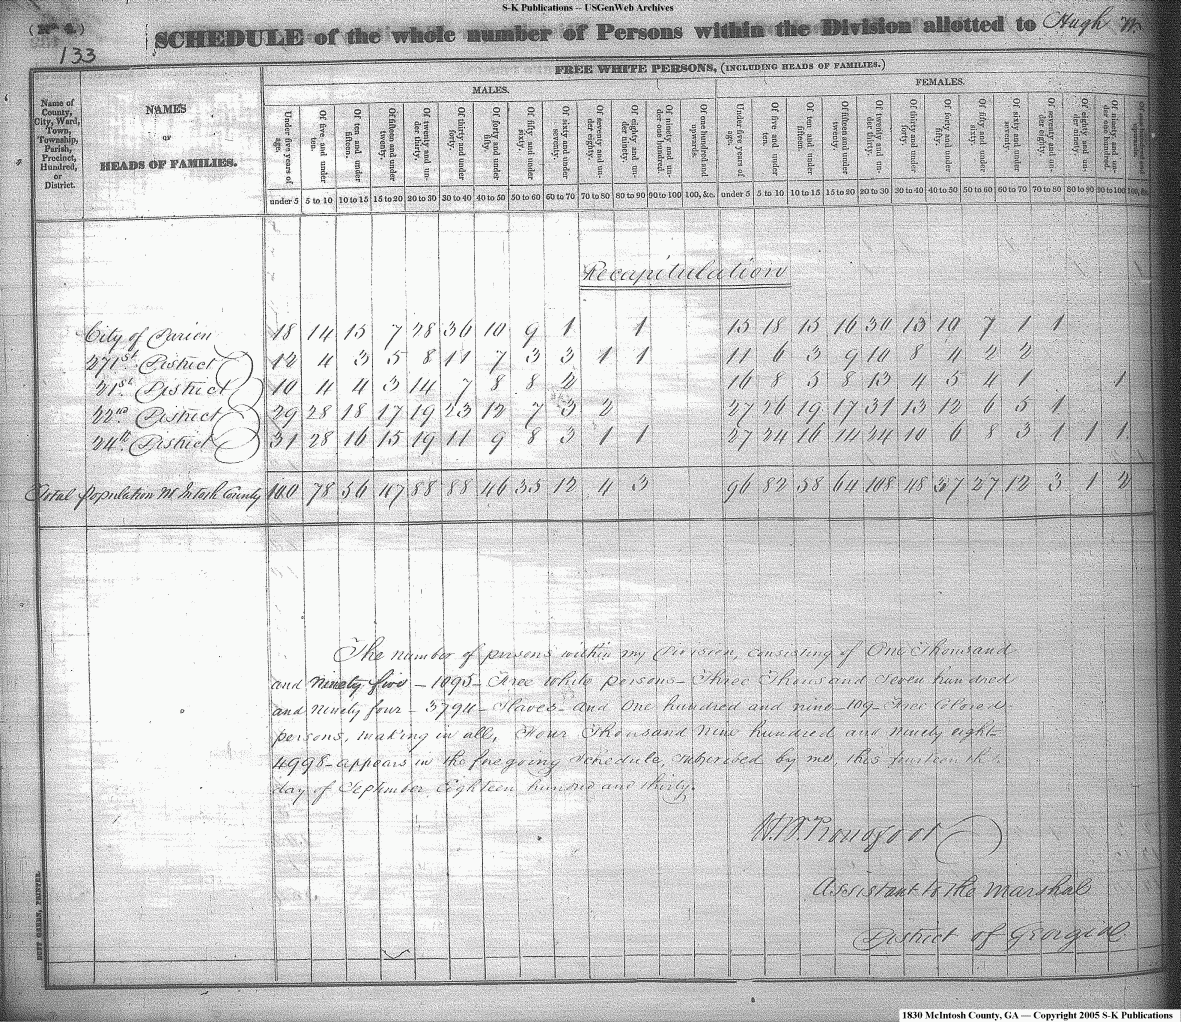 S-K Publications – USGenWeb Archives
(No 6.)
133
SCHEDULE of the whole number of Persons within the Division allotted to Hugh W.
FREE WHITE PERSONS, (INCLUDING HEADS OF FAMILIES.)
MALES. FEMALES.
Name of County, City, Ward, Town, Township, Parish, Precinct, Hundred, or District.
NAMES
OR
HEADS OF FAMILIES.
Under five years of age. Of five and under ten. Of ten and under fifteen. Of fifteen and under twenty. Of twenty and under thirty. Of thirty and under forty. Of forty and under fifty. Of fifty and under sixty. Of sixty and under seventy. Of seventy and under eighty. Of eighty and under ninety. Of ninety and under one hundred. Of one hundred and upwards. Under five years of age. Of five and under ten. Of ten and under fifteen. Of fifteen and under twenty. Of twenty and under thirty. Of thirty and under forty. Of forty and under fifty. Of fifty and under sixty. Of sixty and under seventy. Of seventy and under eighty. Of eighty and under ninety. Of ninety and under one hundred.
under 5 5 to 10 10 to 15 15 to 20 20 to 30 30 to 40 40 to 50 50 to 60 60 to 70 70 to 80 80 to 90 90 to 100 100, &c. under 5 5 to 10 10 to 15 15 to 20 20 to 30 30 to 40 40 to 50 50 to 60 60 to 70 70 to 80 80 to 90 90 to 100 100, &c.
Recapitulation
City of Darien 18 14 15 7 28 36 10 9 1 1 15 18 15 16 30 13 10 7 1 1
271st District 12 4 3 5 8 11 7 3 3 1 1 11 6 3 9 10 8 4 2 2
21st District 10 4 4 3 14 7 8 8 2 16 8 5 8 13 4 5 4 1 1
22nd District 29 28 18 17 19 23 12 7 3 2 27 26 19 17 31 13 12 6 5 1
24th District 31 28 16 15 19 11 9 8 3 1 1 27 24 16 14 24 10 6 8 3 1 1 1
Total population McIntosh County 100 78 56 47 88 88 46 35 12 4 3 96 82 58 64 108 48 37 27 12 3 1 2
The number of persons within my Division, consisting of One Thousand
and Ninety five – 1095 – Free White persons – Three Thousand Seven hundred
and Ninety four – 3794 – Slaves – and One hundred and nine – 109 – Free Colored
persons, making in all, Four Thousand Nine hundred and ninety eight –
4998 – appears in the foregoing Schedule, subscribed by me, this
day of September Eighteen hundred and thirty.
Assistant to the Marshal
District of Georgia
DUFF GREEN, PRINTER.
1830 McIntosh County, GA — Copyright 2005 S-K Publications